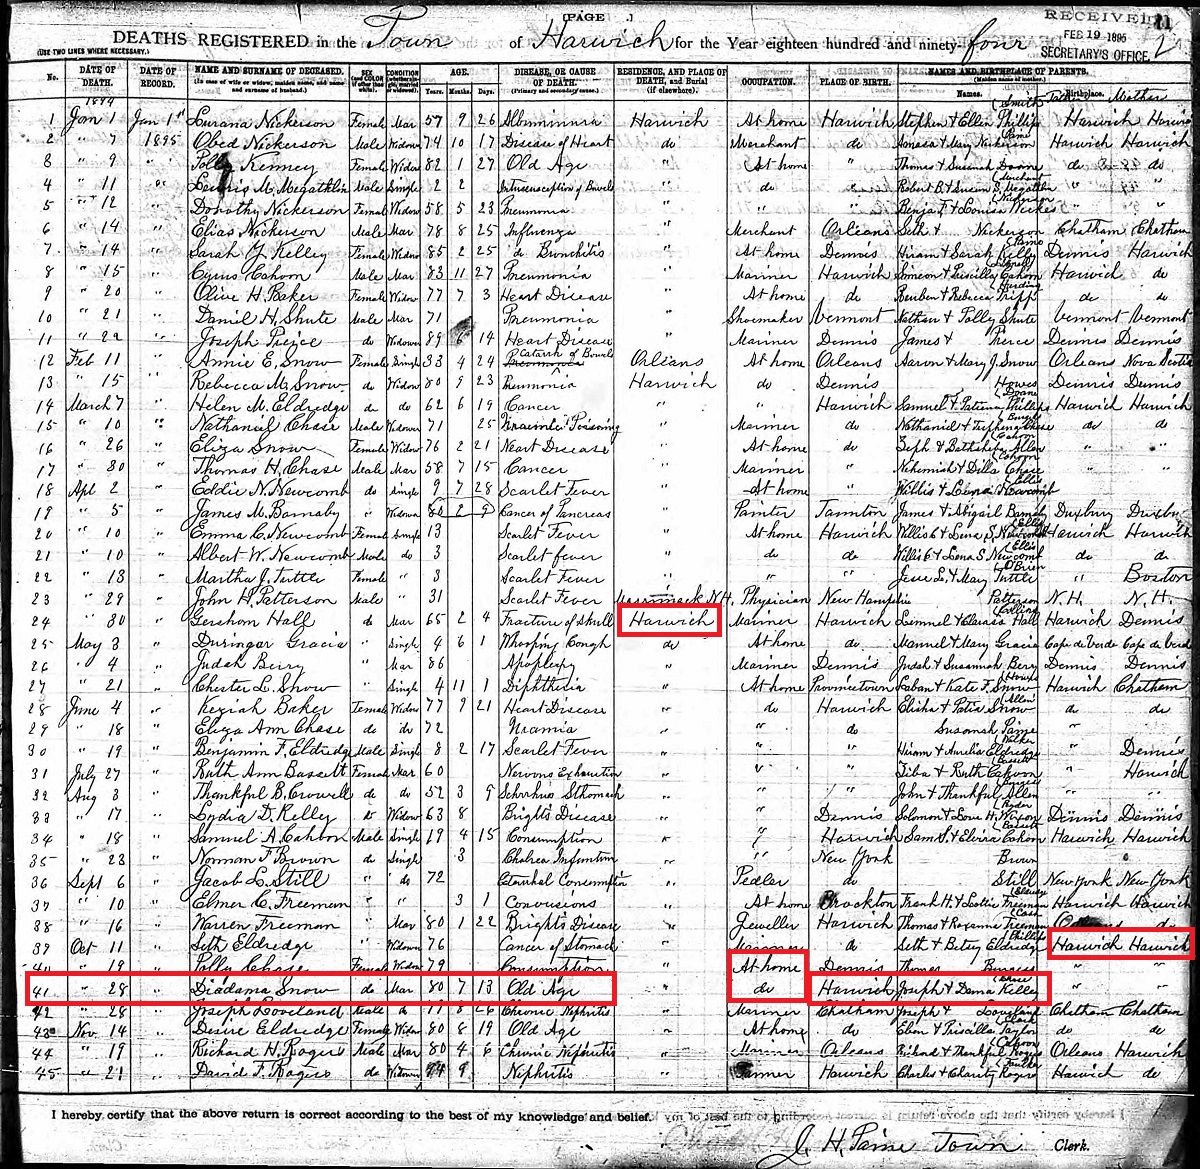 (PAGE )
RECEIVED
FEB 19 1895
SECRETARY'S OFFICE.
DEATHS REGISTERED in the Town of Harwich for the Year eighteen hundred and ninety-four
(USE TWO LINES WHERE NECESSARY.)
No. DATE OF DEATH. DATE OF RECORD. NAME AND SURNAME OF DECEASED. SEX CONDITION AGE. Years. Months. Days. DISEASE, OR CAUSE OF DEATH. (Primary and secondary cause.) RESIDENCE, AND PLACE OF DEATH, and Burial (if elsewhere). OCCUPATION. PLACE OF BIRTH. NAMES AND BIRTHPLACE OF PARENTS, Names. Father Birthplace. Mother
1894
1 Jan 1 Jan 1st Lurana Nickerson Female Mar 57 9 26 Albuminuria Harwich At home Harwich Stephen & Ellen Phillips (Smith Harwich Harwich
2 " 7 1895 Obed Nickerson Male Widow 74 10 17 Disease of Heart do Merchant do Nickerson Harwich Harwich
3 " 9 " Polly Kenney Female Widow 82 1 27 Old Age " At home " Thomas & Susannah Doane do do
4 " 11 " Lewis M. Megathlin Male Single 2 2 Intussusception of Bowels " do " Robert B & Susan S. Megathlin " "
5 " 12 " Dorothy Nickerson Female Widow 58 5 23 Pneumonia " " " Benja F. & Louisa Weekes " "
6 " 14 " Elias Nickerson Male Mar 78 8 25 Influenza " Merchant Orleans Seth & Nickerson Chatham Chatham
7 " 14 " Sarah Y. Kelley Female Widow 85 2 25 do Bronchitis " At home Dennis Hiram & Sarah Kelley Dennis Harwich
8 " 15 " Cyrus Cahoon Male Mar 83 11 27 Pneumonia " Mariner Harwich Simeon & Priscilla Cahoon Harwich do
9 " 20 " Olive H. Baker Female Widow 77 7 3 Heart Disease " At home do Reuben & Rebecca Tripp do do
10 " 21 " Daniel H. Shute Male Mar 71 Pneumonia " Shoemaker Vermont Nathan & Polly Shute Vermont Vermont
11 " 22 " Joseph Peirce do Widow 89 6 14 Heart Disease " Mariner Dennis James & Pierce Dennis Dennis
12 Feb 11 " Annie E. Snow Female Single 33 4 24 Catarrh of Bowels Orleans At home Orleans Aaron & Mary J. Snow Orleans Nova Scotia
13 " 15 " Rebecca M. Snow do Widow 80 9 23 Pneumonia Harwich do Dennis Howes Dennis Dennis
14 March 7 " Helen M. Eldredge do do 62 6 19 Cancer " " Harwich Samuel & Patiena Phillips (Doane Harwich Harwich
15 " 10 " Nathaniel Chase Male Widow 71 25 Uraemic Poisoning " Mariner do Nathaniel & Chase do do
16 " 26 " Eliza Snow Female Widow 76 2 21 Heart Disease " At home do Zeph & Bathsheba Allen (Cahoon " "
17 " 30 " Thomas H. Chase Male Mar 58 7 15 Cancer " Mariner " Nehemiah & Dilla Chase (Cahoon " "
18 Apl 2 " Eddie N. Newcomb do Single 9 7 28 Scarlet Fever " At home " Willis & Lena Newcomb (Ellis " "
19 " 5 " James M. Barnaby " Widow 80 2 9 Cancer of Pancreas " Painter Taunton James & Abigail Barnaby Duxbury Duxbury
20 " 10 " Emma C. Newcomb Female Single 13 Scarlet Fever " At home Harwich Willis C & Lena S. Newcomb (Ellis Harwich Harwich
21 " 10 " Albert W. Newcomb Male do 3 Scarlet fever " do do Willis C & Lena S Newcomb (Ellis do do
22 " 13 " Martha J. Tuttle Female " 3 Scarlet Fever " " " Jesse L. & Mary Tuttle (O'Brien " Boston
23 " 29 " John H. Patterson Male " 31 Scarlet Fever Merrimack N.H. Physician New Hampshire Patterson N.H. N.H.
24 " 30 " Gershom Hall do Mar 65 2 4 Fracture of skull Harwich Mariner Harwich Lemuel & Hall (Collins Harwich Dennis
25 May 3 " Duringar Gracia " Single 4 6 1 Whooping Cough do At home do Manuel & Mary Gracia Cape de Verde Cape de Verde
26 " 4 " Judah Berry " Mar 86 Apoplexy " Mariner Dennis Judah & Susannah Berry Dennis Dennis
27 " 21 " Chester L. Snow " Single 4 11 1 Diphtheria " At home Provincetown Laban & Kate F. Snow (Howes Harwich Chatham
28 June 4 " Keziah Baker Female Widow 77 9 21 Heart Disease " do Harwich Elisha & Patia Snow (Allen do do
29 " 18 " Eliza Ann Chase do do 72 Uraemia " " do Susannah Paine " "
30 " 19 " Benjamin F. Eldredge Male Single 8 2 17 Scarlet Fever " " " Hiram & Aurelia Eldredge " Dennis
31 July 27 " Ruth Ann Bassett Female Mar 60 Nervous Exhaustion " " " Ziba & Ruth Cahoon (Bassett " Harwich
32 Aug 3 " Thankful B. Crowell do do 52 3 9 Schirrhus Sthomach " " " John & Thankful Allen " "
33 " 17 " Lydia D. Kelley do Widow 63 8 Brights Disease " " Dennis Solomon & H. Wixon Dennis Dennis
34 " 18 " Samuel A. Cahoon Male Single 19 4 15 Consumption " " Harwich Saml S. & Elvira Cahoon Harwich Harwich
35 " 23 " Norman F. Brown do Single 3 Cholrea Infantum " " New York Brown
36 Sept 6 " Jacob L. Still " do 72 Catarrhal Consumption " Pedler do Still New York New York
37 " 10 " Elmer C. Freeman 3 1 Convusions " At home Brockton Frank H. & Lottie Freeman (Eldredge Harwich Harwich
38 " 16 " Warren Freeman Mar 80 1 22 Brights Disease " Jeweller Harwich Thomas & Roxanna Freeman do
39 Oct 11 " Seth Eldredge " Widow 76 Cancer of Stomach " Mariner do Seth & Betsy Eldredge (Phillips Harwich Harwich
40 " 19 " Polly Chase Female Widow 79 Consumption " At home Dennis Thomas Burgess " "
41 " 28 " Diadama Snow do Mar 80 7 13 Old Age " do Harwich Joseph & Dema Kelley " "
42 " 28 " Joseph Loveland Male do 77 8 26 Chronic Nephritis " Mariner Chatham Joseph & Loveland Chatham Chatham
43 Nov. 14 " Desire Eldredge Female Widow 80 8 19 Old Age " At home do Eben & Priscilla Taylor (Clark do do
44 " 19 " Richard H. Rogers Male Mar 80 4 6 Chronic Nephritis " Mariner Orleans Richd & Thankful Rogers Orleans Harwich
45 " 21 " David F. Rogers do Widow 84 9 Nephritis " Farmer Harwich Charles & Charity Rogers Harwich do
I hereby certify that the above return is correct according to the best of my knowledge and belief.
J. H. Paine Town Clerk.